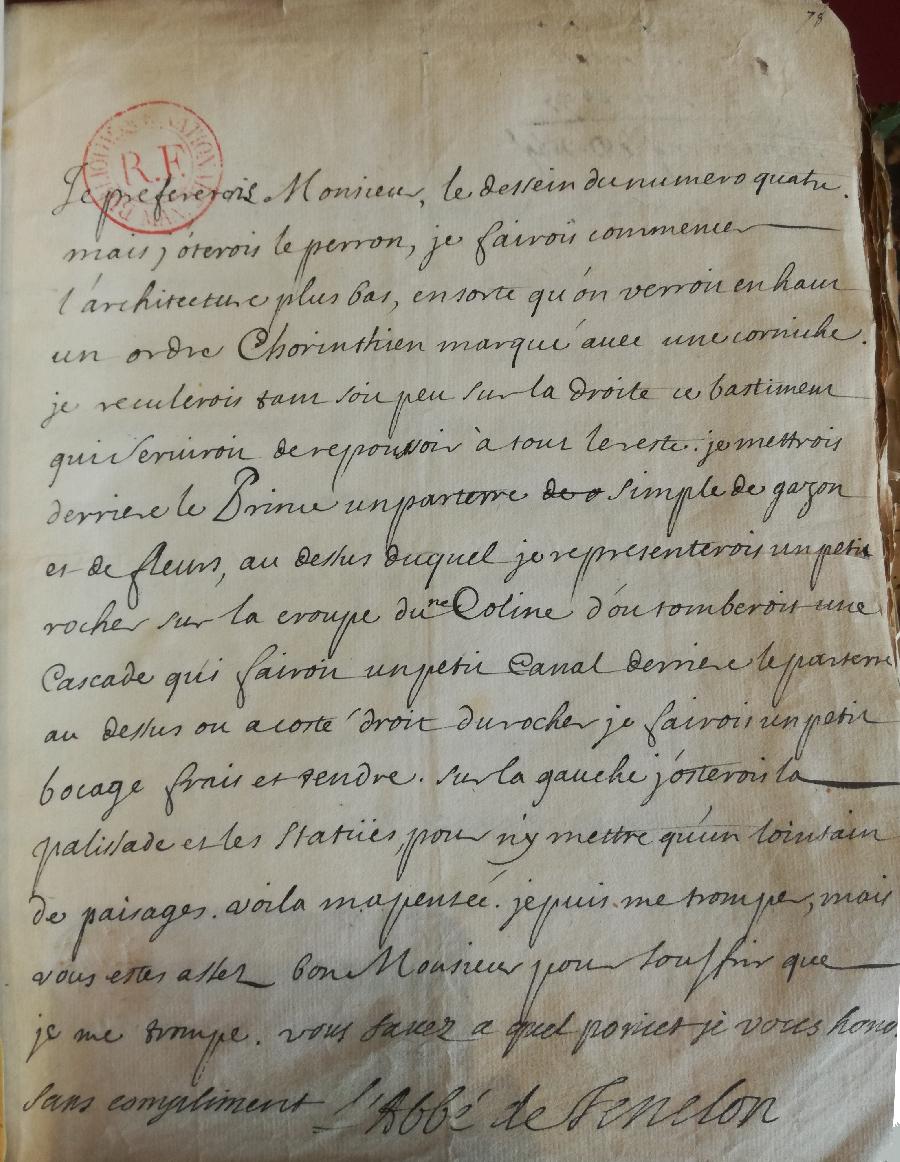 78
BIBLIOTHEQUE NATIONALE
R.F
Je prefererois Monsieur, le dessein du numero quatre.
mais j'óterois le perron, je fairois commencer
l'architecture plus bas, en sorte qu'on verroit en haut
un ordre Chorinthien marqué avec une corniche.
je reculerois tant soit peu sur la droite ce bastiment
qui serviroit de repoussoir à tout le reste. je mettrois
derriere le Prince un parterre de simple de gazon
et de fleurs, au dessus duquel je representerois un petit
rocher sur la croupe du ne Coline d'ou tomberoit une
Cascade qui fairoit un petit Canal derriere le parterre
au dessus ou a costé droit du rocher je fairois un petit
bocage frais et tendre. sur la gauche j'osterois la
palissade et les statües, pour n'y mettre qu'un lointain
de paisages. voila ma pensée. je puis me tromper, mais
vous estes assez bon Monsieur pour souffrir que
je me trompe. vous savez a quel point je vous hono
sans compliment L'Abbé de Fenelon